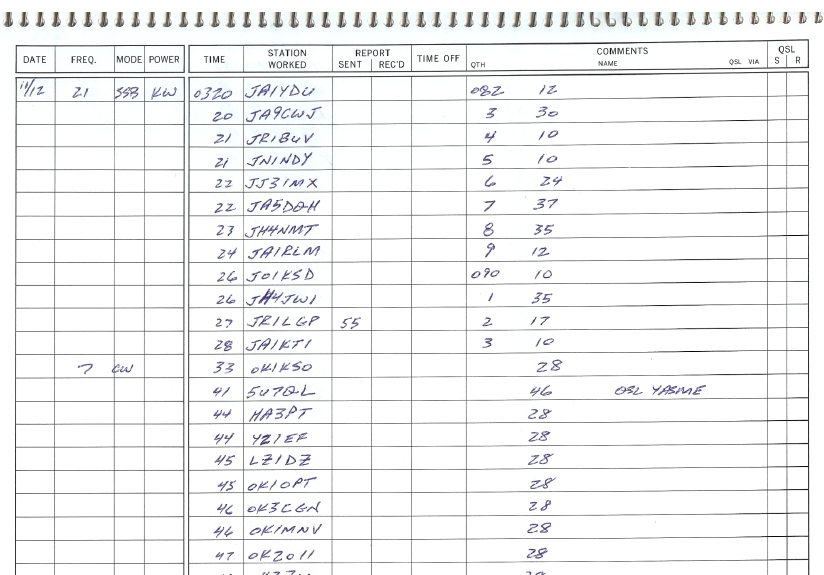 DATE FREQ. MODE POWER TIME STATION WORKED REPORT SENT REC'D TIME OFF COMMENTS QTH NAME QSL VIA QSL S R
11/12 21 SSB KW 0320 JA1YDU 082 12
20 JA9CWJ 3 30
21 JR1BUV 4 10
21 JN1NDY 5 10
22 JJ3IMX 6 24
22 JA5DQH 7 37
23 JH4NMT 8 35
24 JA1RLM 9 12
26 JO1KSD 090 10
26 JH4JWI 1 35
27 JR1LGP 55 2 17
28 JA1KTI 3 10
7 CW 33 OK1KSO 28
41 5U7QL 46 QSL YASME
44 HA3PT 28
44 YZ1EF 28
45 LZ1DZ 28
45 OK1OPT 28
46 OK3CGN 28
46 OK1MNV 28
47 OK2O11 28